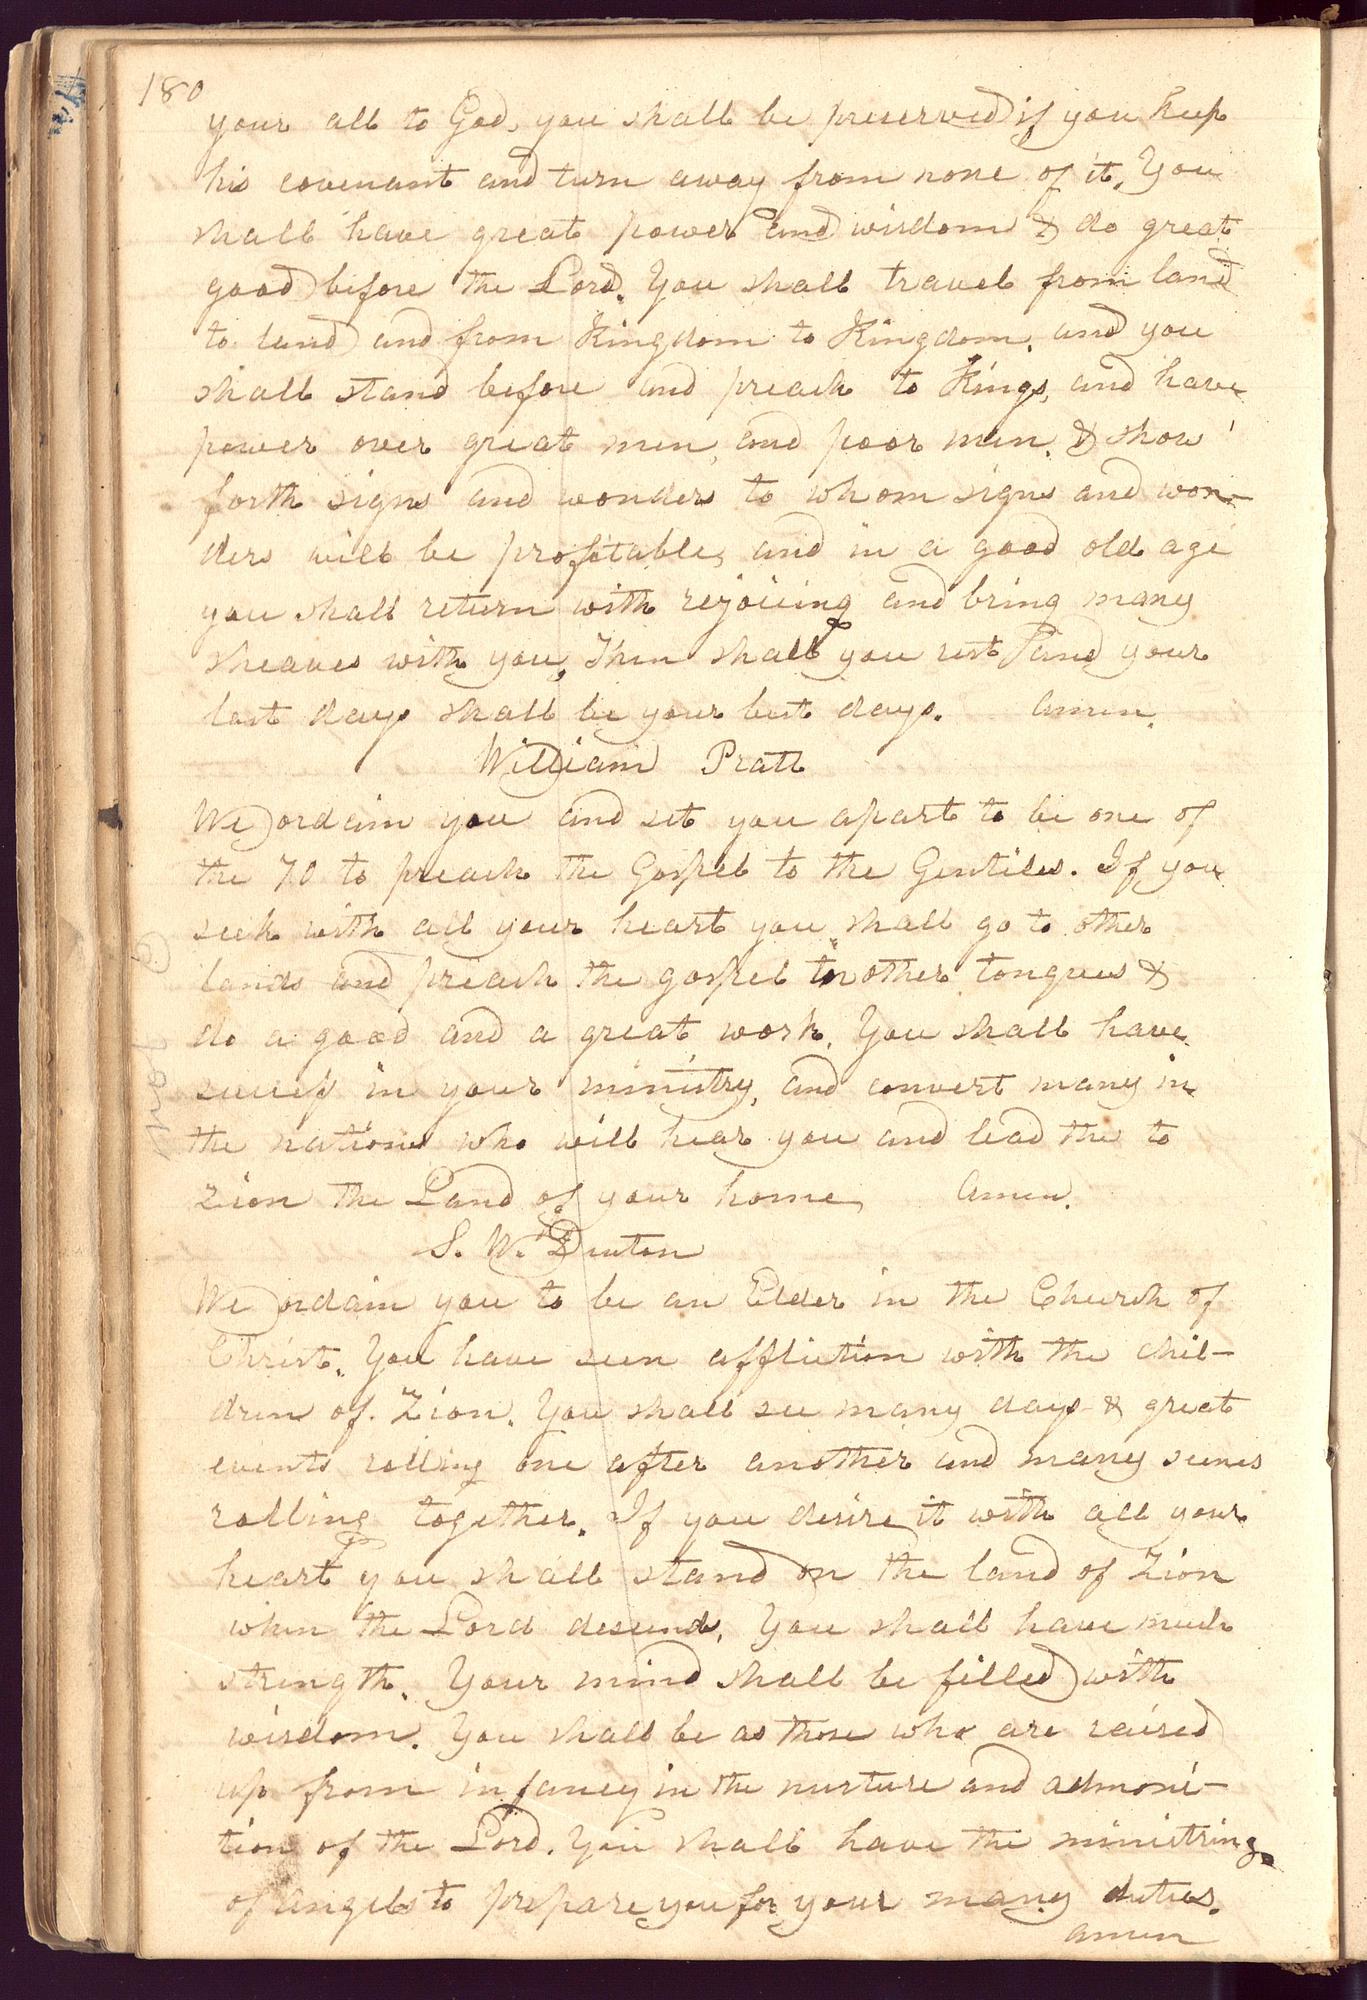 180
your all to God, you shall be preserved if you keep
his covenant and turn away from none of it. You
shall have great power and wisdom & do great
good before the Lord. You shall travel from land
to land and from Kingdom to Kingdom, and you
shall stand before and preach to Kings, and have
power over great men, and poor men. & show
forth signs and wonders to whom signs and won-
ders will be profitable, and in a good old age
you shall return with rejoicing and bring many
sheaves with you. Then shall you rest and your
last days shall be your best days. Amen.
William Pratt
We ordain you and set you apart to be one of
the 70 to preach the Gospel to the Gentiles. If you
seek with all your heart you shall go to other
lands and preach the gospel in other tongues &
do a good and a great work. You shall have
success in your ministry, and convert many in
the nations who will hear you and lead the to
Zion the Land of your home, Amen.
S. W. Denton
We ordain you to be an Elder in the Church of
Christ. You have seen affliction with the chil-
dren of Zion. You shall see many days & great
events rolling one after another and many scenes
rolling together. If you desire it with all your
heart you shall stand on the land of Zion
when the Lord descends. You shall have much
strength. Your mind shall be filled with
wisdom. You shall be as those who are raised
up from infancy in the nurture and admoni-
tion of the Lord. You shall have the ministring
of angels to prepare you for your many duties.
amen